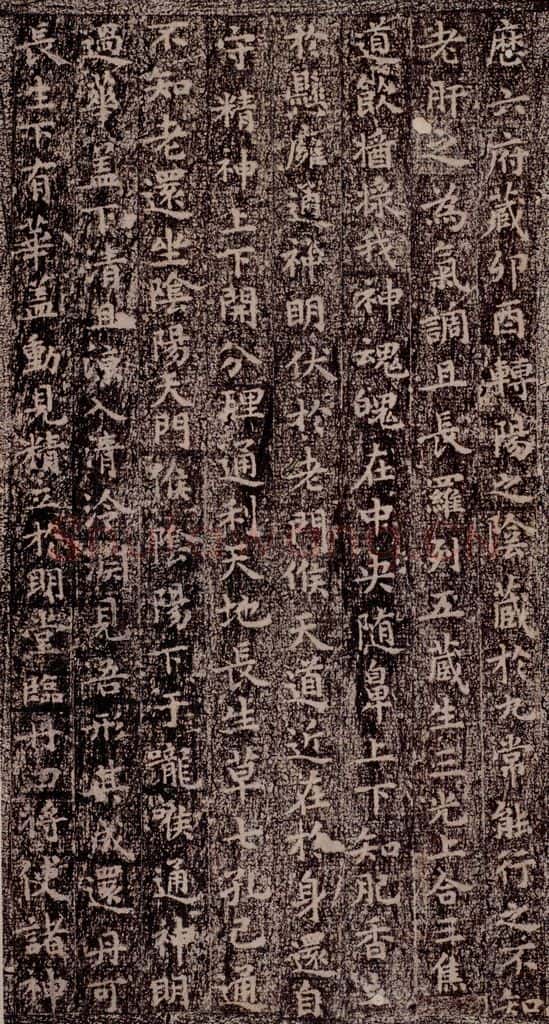 歷六府藏卯酉轉陽之陰藏於九常能行之不知
老肝之為氣調且長羅列五藏生三光上合三焦
道飲漿我神魂魄在中央随鼻上下知肥香立
於懸膺通神明伏於老門候天道近在於身還自
守精神上下開分理通利天地長生草七孔已通
不知老還坐陰陽天門候陰陽下于嚨喉通神明
過華蓋下清且涼入清冷淵見吾形其成還丹可
長生下有華盖動見精立於明堂臨丹田将使諸神